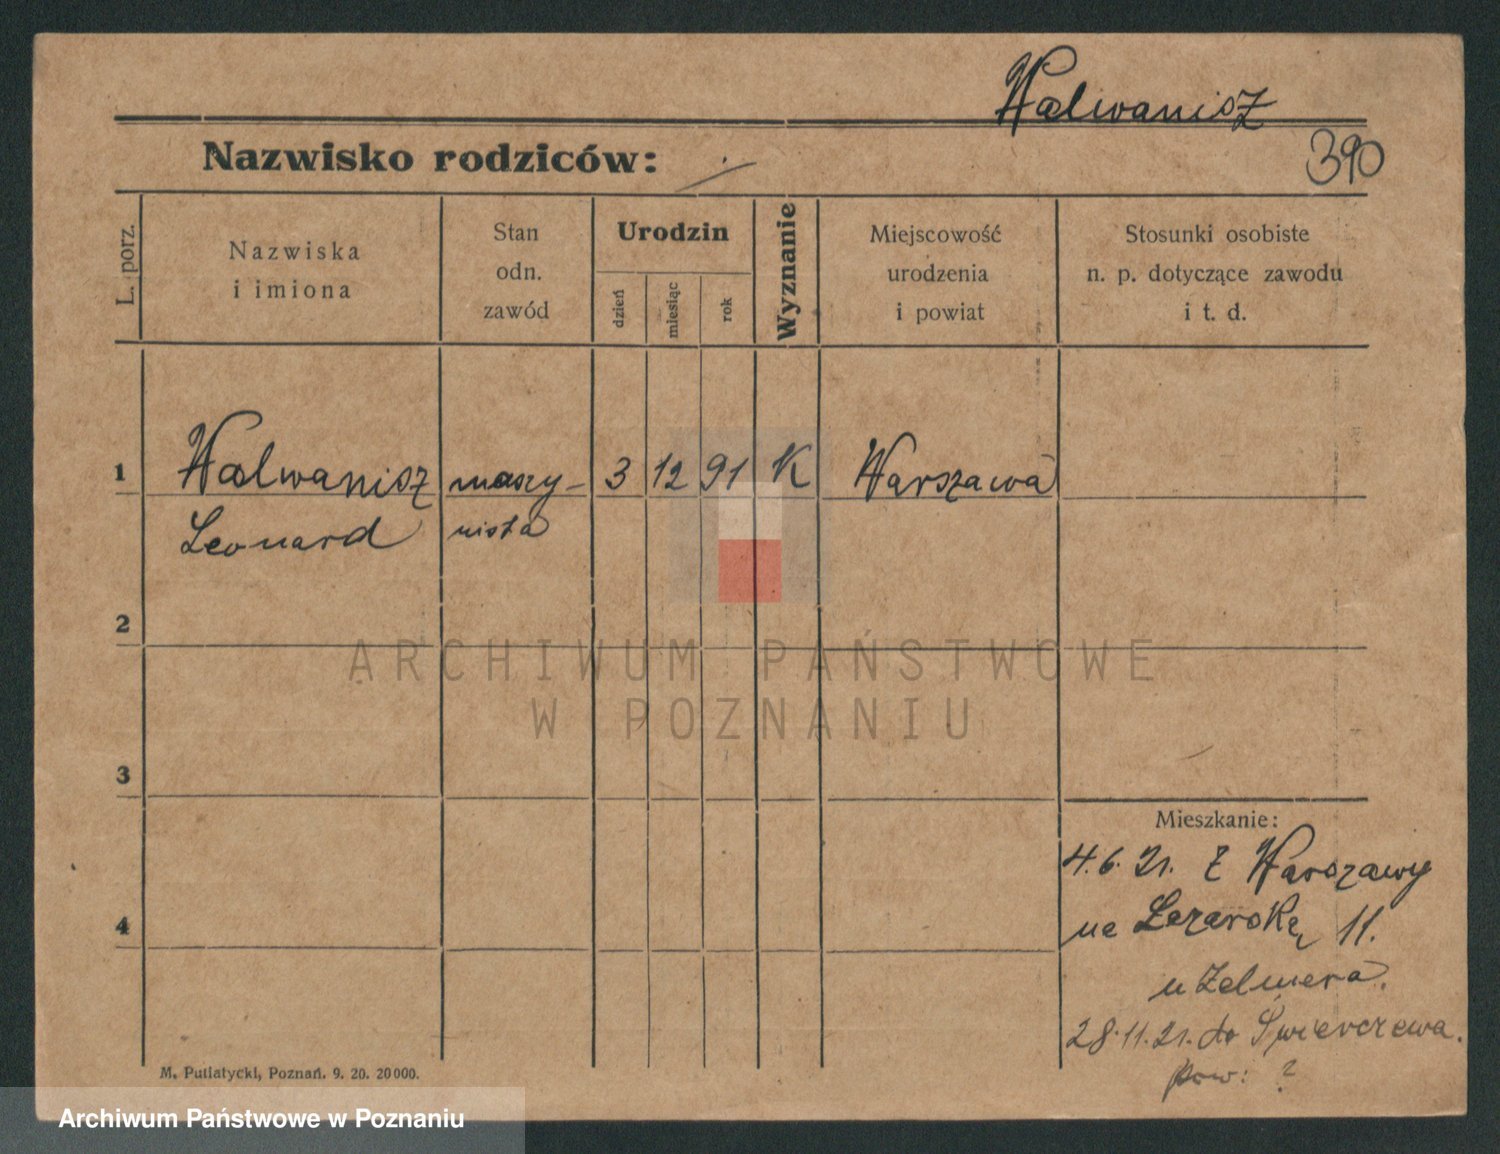 Walwanisz
390
Nazwisko rodziców: ./.
L. porz.
Nazwiska
i imiona
Stan
odn.
zawód
Urodzin
dzień
miesiąc
rok
Wyznanie
Miejscowość
urodzenia
i powiat
Stosunki osobiste
n. p. dotyczące zawodu
i t. d.
1 Walwanisz maszy- 3 12 91 K Warszawa
Leonard nista
2
3
4
ARCHIWUM PAŃSTWOWE
W POZNANIU
Mieszkanie:
4.6.21. z Warszawy
na Łazarską 11.
u Zelmera.
28.11.21. do Świerczewa.
pow: ?
M. Putiatycki, Poznań. 9. 20. 20000.
Archiwum Państwowe w Poznaniu